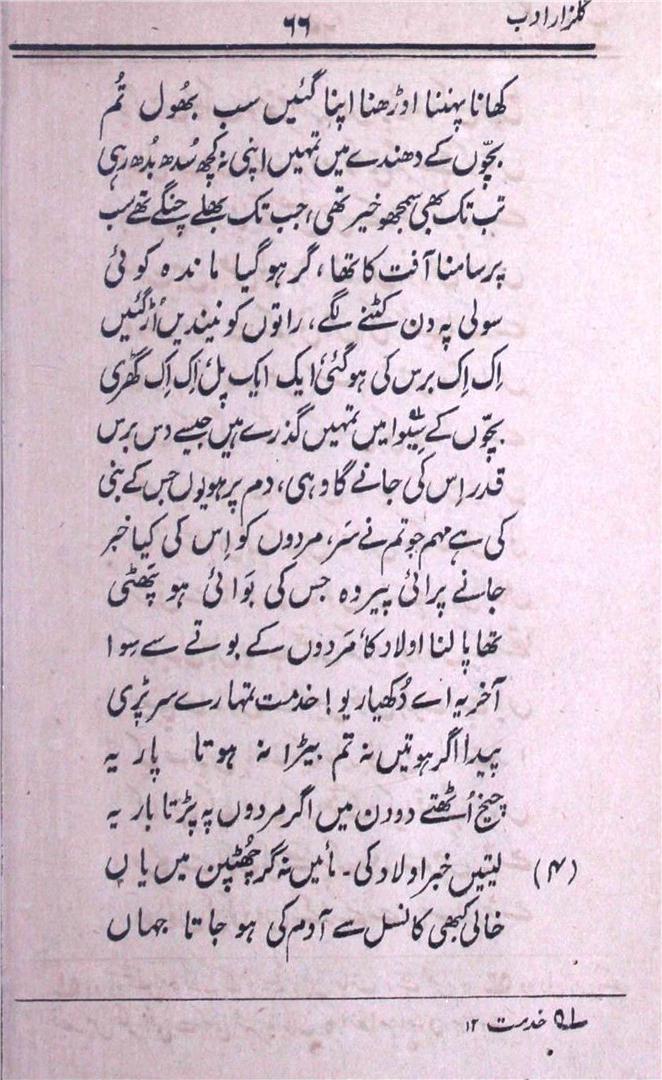 گلزار ادب
۶۶
کھانا پہننا اوڑھنا اپنا گئیں سب بھُول تُم
بچّوں کے دھندے میں تمہیں اپنی نہ کچھ سُدھ بُدھ رہی
تب تک بھی سمجھو خیر تھی، جب تک بھلے چنگے تھے سب
پر سامنا آفت کا تھا، گر ہو گیا ماندہ کوئی
سولی پہ دن کٹنے لگے، راتوں کو نیندیں اُڑ گئیں
اِک اِک برس کی ہو گئی، ایک ایک پل، اِک اِک گھڑی
بچّوں کے سِیوا؎۱ میں تمہیں گذرے ہیں جیسے دس برس
قدر اِس کی جانے گا وہی، دم پر ہو یوں جس کے بنی
کی ہے مہم جو تم نے سَر، مردوں کو اِس کی کیا خبر
جانے پرائی پیر وہ جس کی بَوائی ہو پھَٹی
تھا پالنا اولاد کا، مَردوں کے بوتے سے سِوا
آخر یہ اے دُکھیاریو! خدمت تمہارے سر پڑی
پیدا اگر ہوتیں نہ تم بیڑا نہ ہوتا پار یہ
چیخ اُٹھتے دو دن میں اگر مردوں پہ پڑتا بار یہ
(۴) لیتیں خبر اولاد کی۔ مائیں نہ گر چھُٹپن میں یاں
خالی کبھی کا نسل سے آدم کی ہو جاتا جہاں
؎۱ خدمت ۱۲